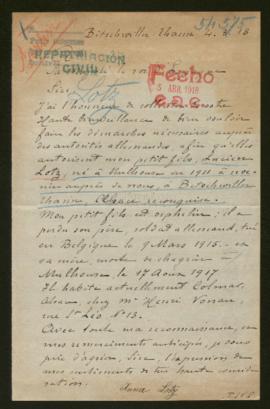 Bitschwiller Thann 4. 3. 18
54575
REPATRIACIÓN
CIVIL
Fecho
5 ABR. 1918
Sire
Lotz
J'ai l'honneur de
Haute bienveillance de bien vouloir
faire les démarches nécessaires auprès
des autorités allemandes afin qu'elles
autorisent mon petit fils, Lucien
Lotz, né à Mulhouse en 1911 à
auprès de nous, à Bitschwiller
Thann, Alsace reconquise.
Mon petit fils est orphelin; il a
perdu son père, soldat allemand, tué
en Belgique le 9 Mars 1915. et
sa mère, morte de chagrin à
Mulhouse, le 17 Août 1917.
Il habite actuellement Colmar,
Alsace, chez Mr Henri
rue St Léo No 13.
Avec toute ma reconnaissance, et
mes remerciements anticipés, je vous
prie d'agréer, Sire, l'expression de
mes sentiments de très haute considé-
ration.
Lotz